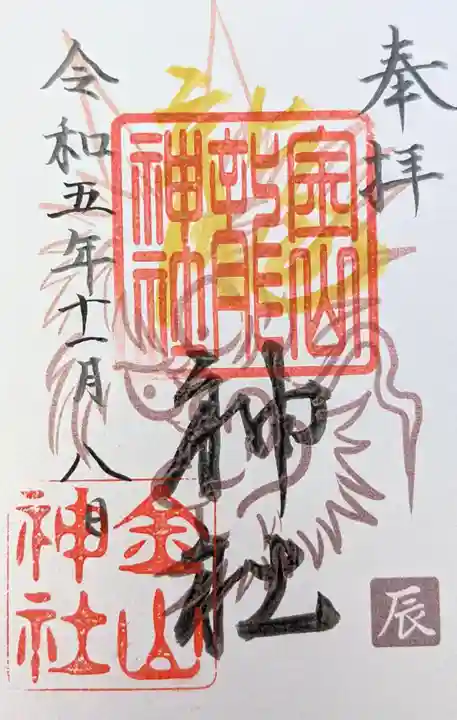 奉拝
神社
神社
令和五年十一月八日
金山
神社
辰